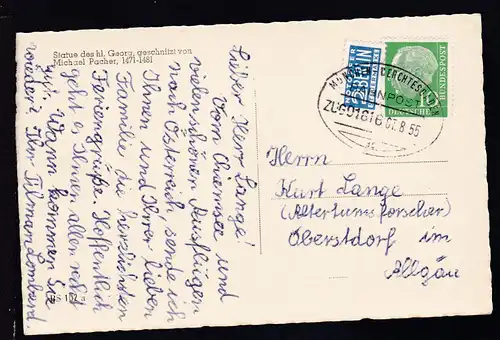 Statue des hl. Georg, geschnitzt von
Michael Pacher, 1471-1481
Lieber Herr Lange!
Vom Chiemsee und
vielen schönen Ausflügen
nach Österreich sende ich
Ihnen und Ihrer lieben
Familie die herzlichsten
Feriengrüße. Hoffentlich
geht es Ihnen allen recht
gut. Wann kommen Sie
wieder? Ihr Tilman Lombard.
NOTOPFER
2 BERLIN
STEUERMARKE
10
DEUTSCHE
BUNDESPOST
MÜNCHEN-BERCHTESGADEN
BAHNPOST
ZUG01616 01.8.55
Herrn
Kurt Lange
(Altertumsforscher)
Oberstdorf im
Allgäu